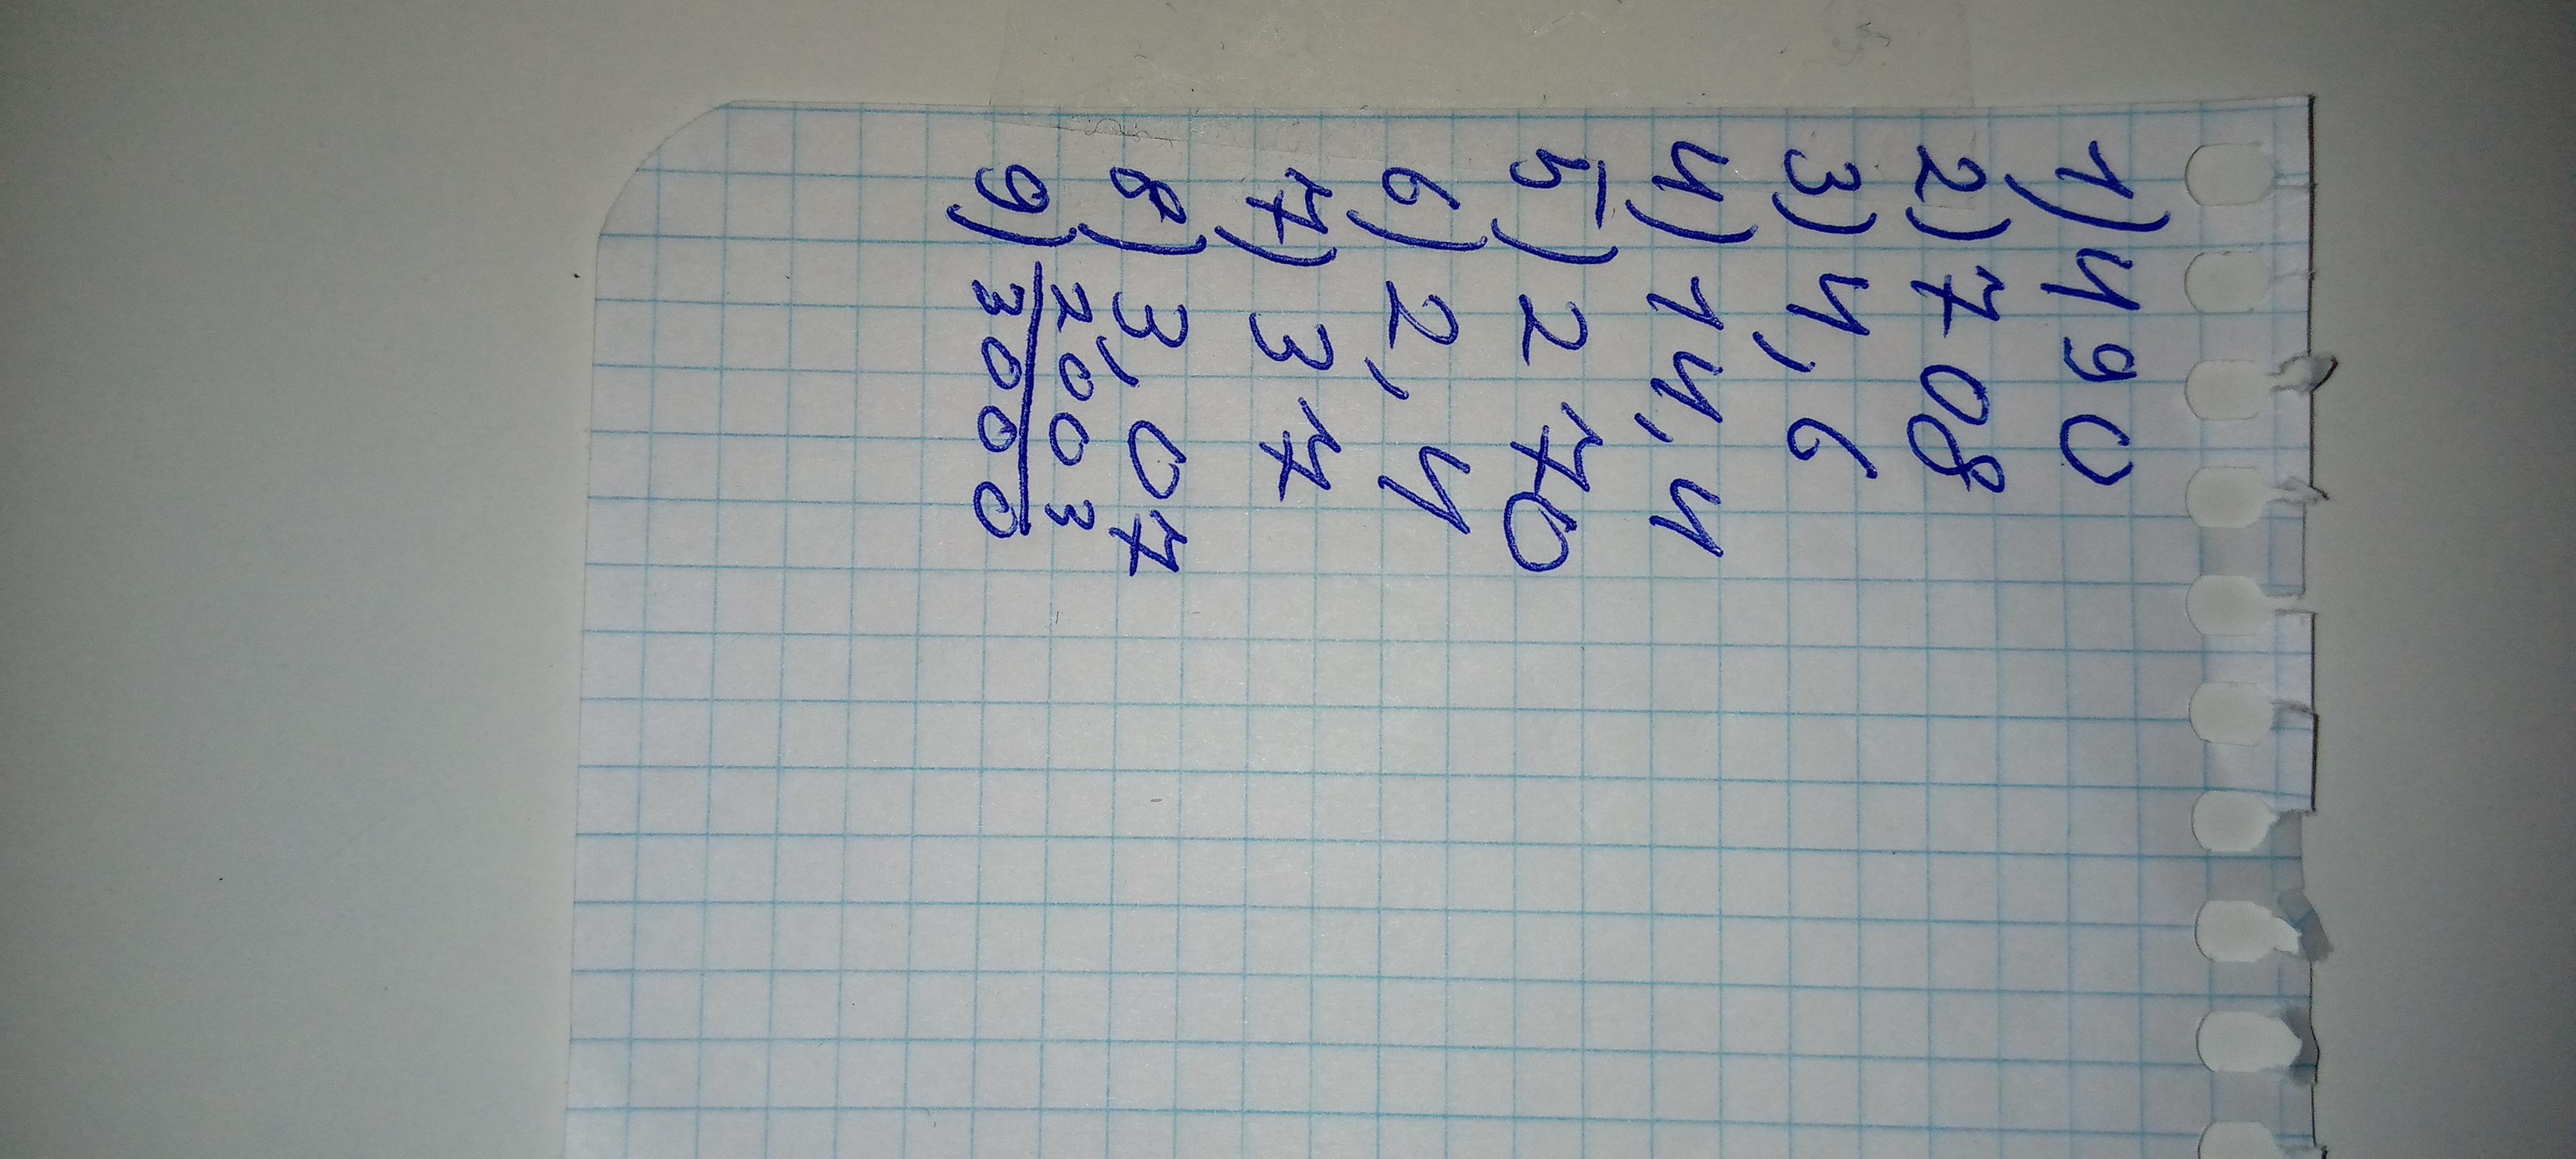 1) 490
2) 708
3) 4,6
4) 14,4
5) 270
6) 2,4
7) 37
8) 3,07
9) 2003
3000